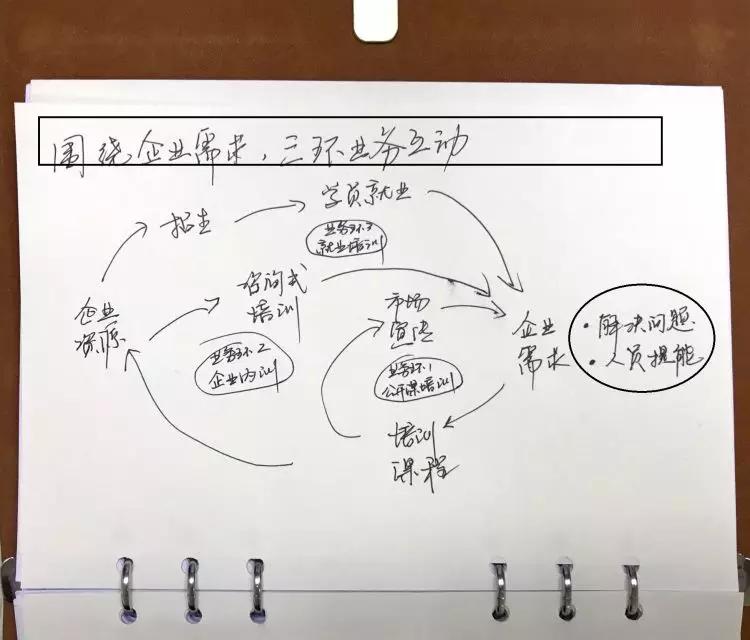 围绕企业需求，三环业务互动
招生
学员就业
业务环3
就业培训
咨询式
培训
企业
资源
业务环2
企业内训
市场
宣传
业务环1
公开课培训
企业
需求
·解决问题
·人员提能
培训
课程